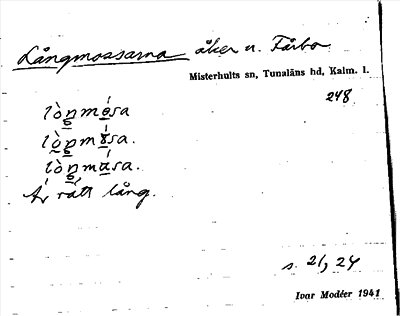 Långmossarna åker u. Fårbo
Misterhults sn, Tunaläns hd, Kalm. l.
248
lòŋmósa
lòŋmɤ́sa.
lòŋmása.
Är rätt lång.
s. 21, 24
Ivar Modéer 1941